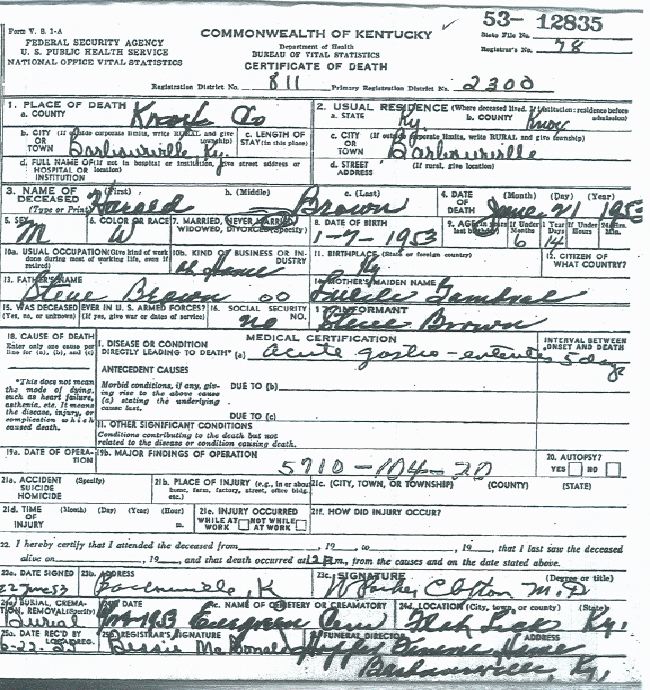 Form V. S. 1-A
FEDERAL SECURITY AGENCY
U. S. PUBLIC HEALTH SERVICE
NATIONAL OFFICE VITAL STATISTICS
COMMONWEALTH OF KENTUCKY
Department of Health
BUREAU OF VITAL STATISTICS
CERTIFICATE OF DEATH
53- 12835
State File No.
Registrar's No. 78
Registration District No. 811 Primary Registration District No. 2300
1. PLACE OF DEATH
a. COUNTY Knox Co
2. USUAL RESIDENCE (Where deceased lived. If institution: residence before admission)
a. STATE Ky b. COUNTY Knox
b. CITY (If outside corporate limits, write RURAL and give township)
OR TOWN Barbourville Ky.
c. LENGTH OF STAY (in this place)
c. CITY (If outside corporate limits, write RURAL and give township)
OR TOWN Barbourville
d. FULL NAME OF (If not in hospital or institution, give street address or location)
HOSPITAL OR INSTITUTION
d. STREET ADDRESS (If rural, give location)
3. NAME OF DECEASED (Type or Print)
a. (First) b. (Middle) c. (Last)
Harold Brown
4. DATE OF DEATH (Month) (Day) (Year)
June 21 1953
5. SEX M
6. COLOR OR RACE W
7. MARRIED, NEVER MARRIED, WIDOWED, DIVORCED (Specify)
8. DATE OF BIRTH 1-7-1953
9. AGE (In years last birthday) If Under 1 Year Months Days If Under 24 Hrs. Hours Min.
6 14
10a. USUAL OCCUPATION (Give kind of work done during most of working life, even if retired)
10b. KIND OF BUSINESS OR INDUSTRY
at home
11. BIRTHPLACE (State or foreign country)
Ky
12. CITIZEN OF WHAT COUNTRY?
13. FATHER'S NAME
Steve Brown
14. MOTHER'S MAIDEN NAME
Lucile
15. WAS DECEASED EVER IN U. S. ARMED FORCES?
(Yes, no, or unknown) (If yes, give war or dates of service)
16. SOCIAL SECURITY NO.
no
17. INFORMANT
Steve Brown
18. CAUSE OF DEATH
Enter only one cause per line for (a), (b), and (c)
MEDICAL CERTIFICATION
INTERVAL BETWEEN ONSET AND DEATH
I. DISEASE OR CONDITION
DIRECTLY LEADING TO DEATH* (a) acute gastro-enteritis 5 days
*This does not mean the mode of dying, such as heart failure, asthenia, etc. It means the disease, injury, or complication which caused death.
ANTECEDENT CAUSES
Morbid conditions, if any, giving rise to the above cause (a) stating the underlying cause last.
DUE TO (b)
DUE TO (c)
II. OTHER SIGNIFICANT CONDITIONS
Conditions contributing to the death but not related to the disease or condition causing death.
19a. DATE OF OPERATION
19b. MAJOR FINDINGS OF OPERATION
5710-104-20
20. AUTOPSY?
YES NO
21a. ACCIDENT SUICIDE HOMICIDE (Specify)
21b. PLACE OF INJURY (e.g., in or about home, farm, factory, street, office bldg., etc.)
21c. (CITY, TOWN, OR TOWNSHIP) (COUNTY) (STATE)
21d. TIME OF INJURY (Month) (Day) (Year) (Hour) m.
21e. INJURY OCCURRED
WHILE AT WORK NOT WHILE AT WORK
21f. HOW DID INJURY OCCUR?
22. I hereby certify that I attended the deceased from , 19 to , 19 , that I last saw the deceased
alive on , 19 , and that death occurred at m., from the causes and on the date stated above.
23a. DATE SIGNED 23b. ADDRESS 23c. SIGNATURE (Degree or title)
22 June 53 Barbourville, K W Parker Clifton M.D
24a. BURIAL, CREMATION, REMOVAL (Specify)
Burial
24b. DATE
1953
24c. NAME OF CEMETERY OR CREMATORY
Evergreen Cem
24d. LOCATION (City, town, or county) (State)
Flat Lick Ky.
25a. DATE REC'D BY LOCAL REG.
6-22-53
25b. REGISTRAR'S SIGNATURE
Bessie McDonald
26. FUNERAL DIRECTOR ADDRESS
Hopper Funeral Home
Barbourville, Ky.